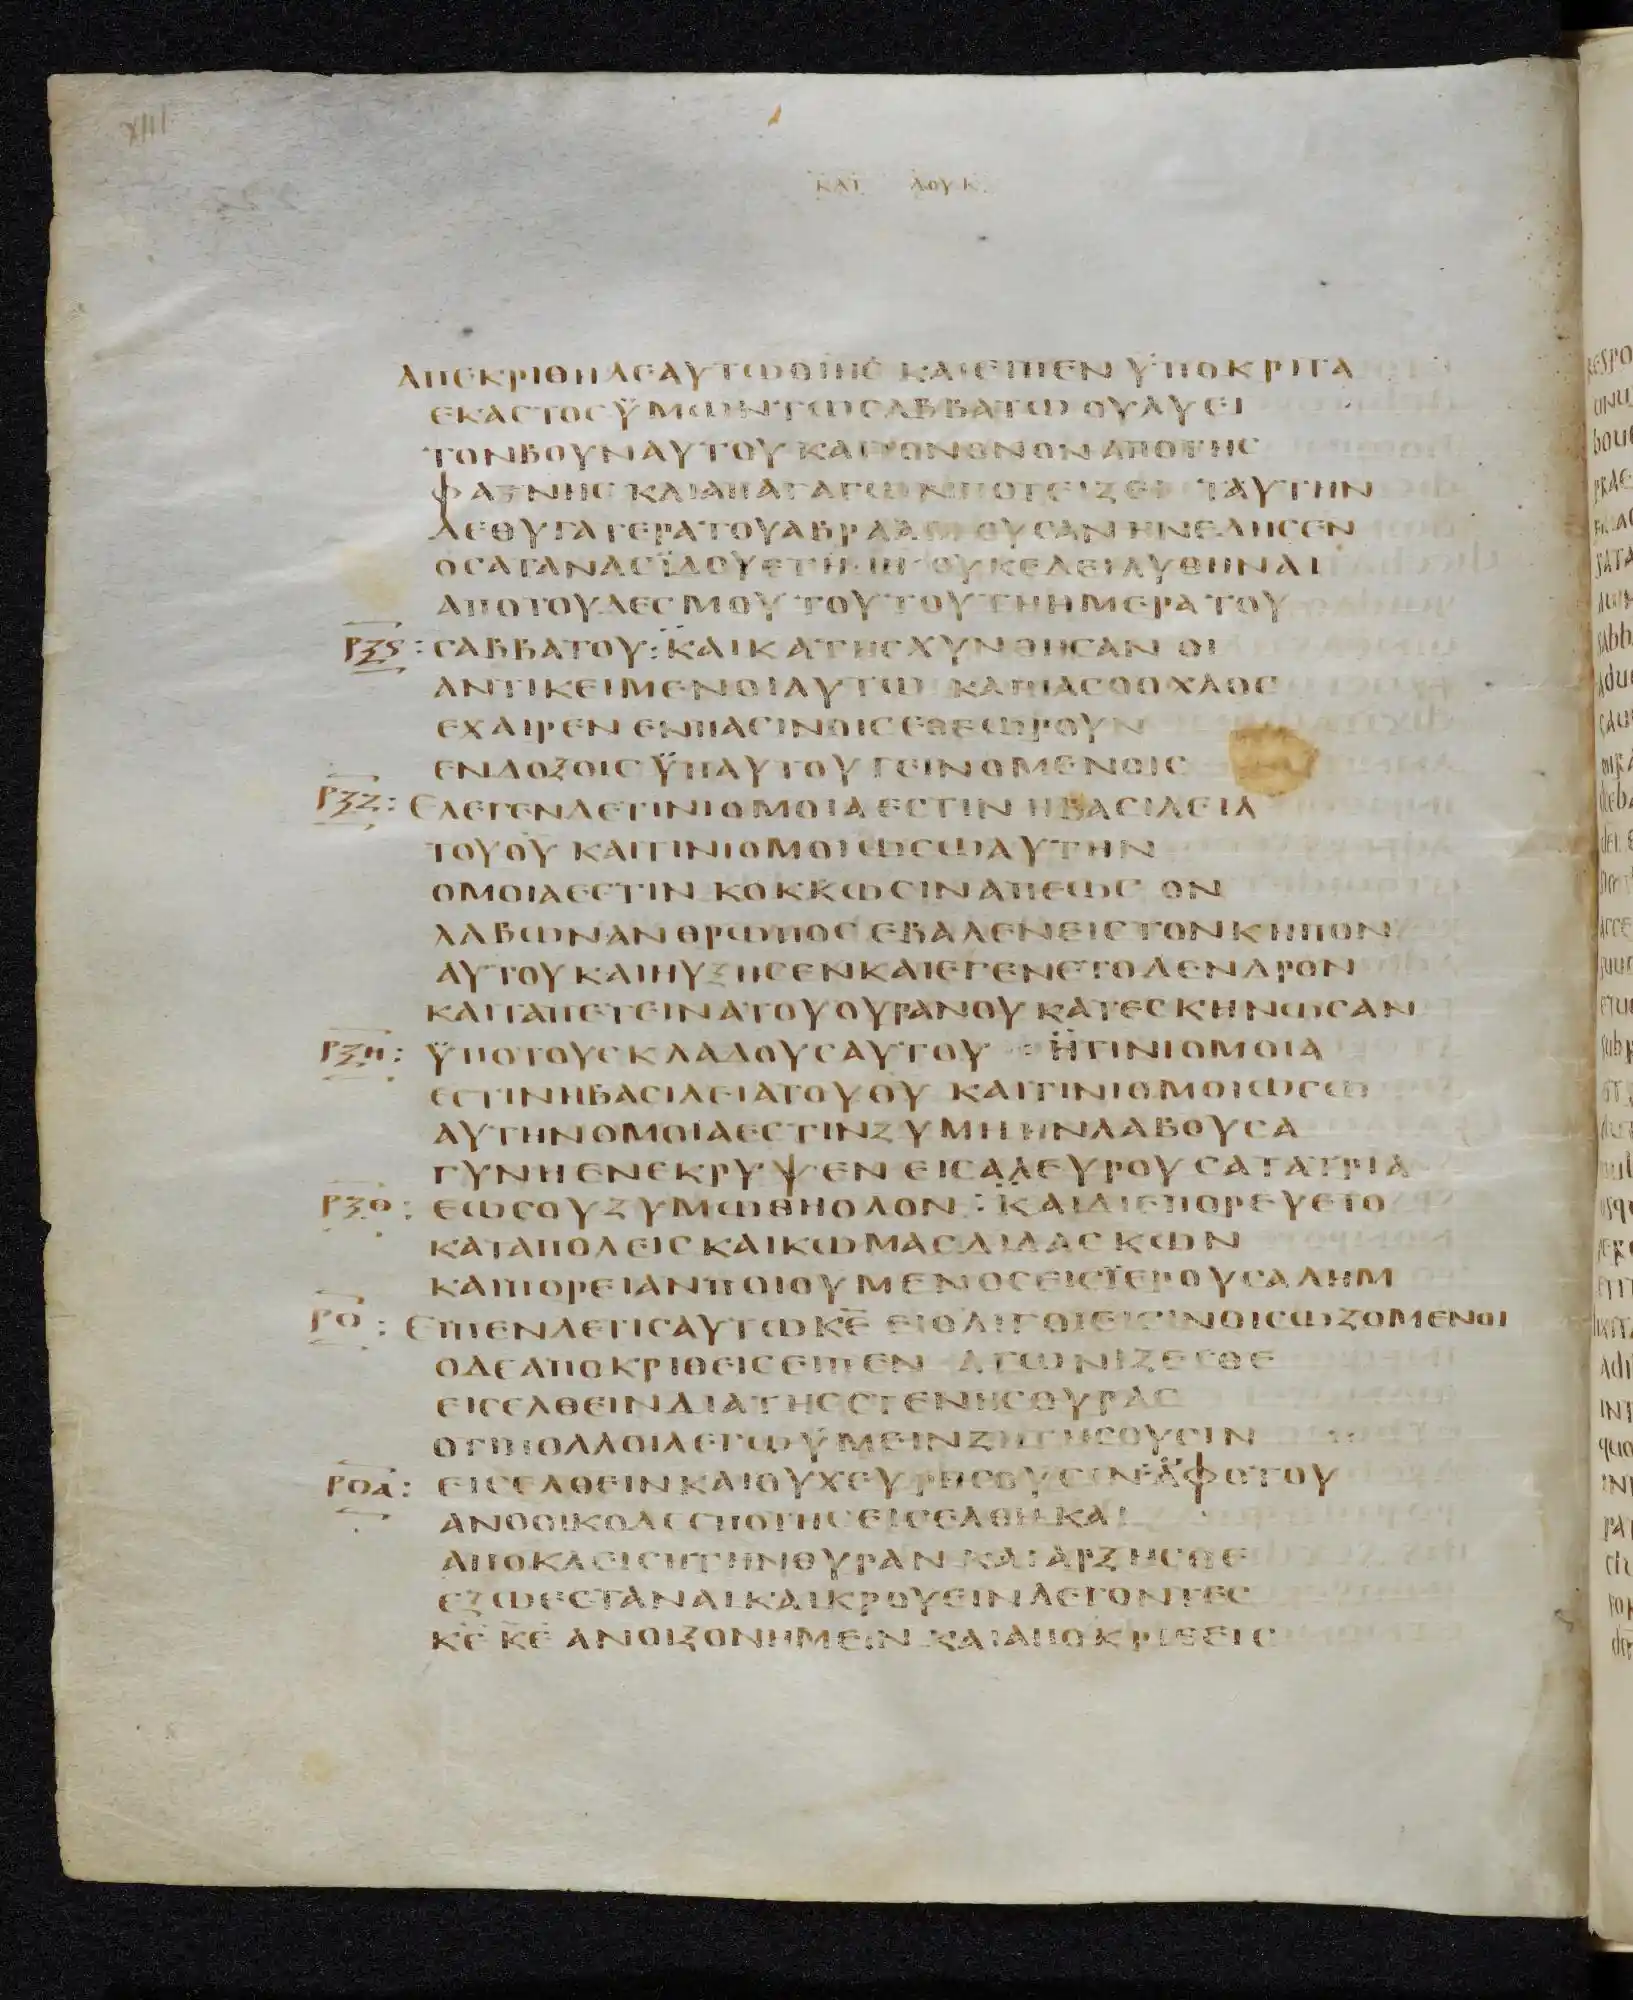 ΚΑΤ ΛΟΥΚ
ΑΠΕΚΡΙΘΗΔΕΑΥΤΩΟΙΗС ΚΑΙΕΙΠΕΝ ΫΠΟΚΡΙΤΑ
ΕΚΑСΤΟСΫΜΩΝΤΩСΑΒΒΑΤΩ ΟΥΛΥΕΙ
ΤΟΝΒΟΥΝΑΥΤΟΥ ΚΑΙΤΟΝΟΝΟΝΑΠΟΤΗС
ΦΑΤΝΗС ΚΑΙΑΠΑΓΑΓΩΝΠΟΤΕΙΖΕΙ ΤΑΥΤΗΝ
ΔΕΘΥΓΑΤΕΡΑΤΟΥΑΒΡΑΑΜ ΟΥСΑΝΗΝΕΔΗСΕΝ
ΟСΑΤΑΝΑСΪΔΟΥΕΤΗ ΙΗ ΟΥΚΕΔΕΙΛΥΘΗΝΑΙ
ΑΠΟΤΟΥΔΕСΜΟΥ ΤΟΥΤΟΥ ΤΗΗΜΕΡΑΤΟΥ
ΡϞϚ : СΑΒΒΑΤΟΥ : ΚΑΙΚΑΤΗСΧΥΝΘΗСΑΝ ΟΙ
ΑΝΤΙΚΕΙΜΕΝΟΙΑΥΤΩ ΚΑΙΠΑСΟΟΧΛΟС
ΕΧΑΙΡΕΝ ΕΝΠΑСΙΝΟΙСΕΘΕΩΡΟΥΝ
ΕΝΔΟΞΟΙС ΫΠΑΥΤΟΥ ΓΕΙΝΟΜΕΝΟΙС
ΡϞΖ : ΕΛΕΓΕΝΔΕΤΙΝΙΟΜΟΙΑΕСΤΙΝ ΗΒΑСΙΛΕΙΑ
ΤΟΥΘΥ ΚΑΙΤΙΝΙΟΜΟΙΩСΩΑΥΤΗΝ
ΟΜΟΙΑΕСΤΙΝ ΚΟΚΚΩСΙΝΑΠΕΩС ΟΝ
ΛΑΒΩΝΑΝΘΡΩΠΟС ΕΒΑΛΕΝΕΙСΤΟΝΚΗΠΟΝ
ΑΥΤΟΥΚΑΙΗΥΞΗСΕΝΚΑΙΕΓΕΝΕΤΟΔΕΝΔΡΟΝ
ΚΑΙΤΑΠΕΤΕΙΝΑΤΟΥΟΥΡΑΝΟΥ ΚΑΤΕСΚΗΝΩСΑΝ
ΡϞΗ : ΫΠΟΤΟΥСΚΛΑΔΟΥСΑΥΤΟΥ : ΗΤΙΝΙΟΜΟΙΑ
ΕСΤΙΝΗΒΑСΙΛΕΙΑΤΟΥΘΥ ΚΑΙΤΙΝΙΟΜΟΙΩСΩ
ΑΥΤΗΝΟΜΟΙΑΕСΤΙΝΖΥΜΗ ΗΝΛΑΒΟΥСΑ
ΓΥΝΗΕΝΕΚΡΥΨΕΝ ΕΙСΑΛΕΥΡΟΥСΑΤΑΤΡΙΑ
ΡϞΘ : ΕΩСΟΥΖΥΜΩΘΗΟΛΟΝ : ΚΑΙΔΙΕΠΟΡΕΥΕΤΟ
ΚΑΤΑΠΟΛΕΙСΚΑΙΚΩΜΑСΔΙΔΑСΚΩΝ
ΚΑΙΠΟΡΕΙΑΝΠΟΙΟΥΜΕΝΟСΕΙСΪΕΡΟΥСΑΛΗΜ
ΡΟ : ΕΙΠΕΝΔΕΤΙСΑΥΤΩΚΕ ΕΙΟΛΙΓΟΙΕΙСΙΝΟΙСΩΖΟΜΕΝΟΙ
ΟΔΕΑΠΟΚΡΙΘΕΙСΕΙΠΕΝ ΑΓΩΝΙΖΕСΘΕ
ΕΙСΕΛΘΕΙΝΔΙΑΤΗССΤΕΝΗСΘΥΡΑС
ΟΤΙΠΟΛΛΟΙΛΕΓΩΫΜΕΙΝΖΗΤΗСΟΥСΙΝ
ΡΟΑ : ΕΙСΕΛΘΕΙΝΚΑΙΟΥΧΕΥΡΗСΟΥСΙΝ ΑΦΟΤΟΥ
ΑΝΟΟΙΚΟΔΕСΠΟΤΗСΕΙСΕΛΘΗ ΚΑΙ
ΑΠΟΚΛΕΙСΗΤΗΝΘΥΡΑΝ ΚΑΙΑΡΞΗСΘΕ
ΕΞΩΕСΤΑΝΑΙΚΑΙΚΡΟΥΕΙΝΛΕΓΟΝΤΕС
ΚΕ ΚΕ ΑΝΟΙΞΟΝΗΜΕΙΝ ΚΑΙΑΠΟΚΡΙΘΕΙС